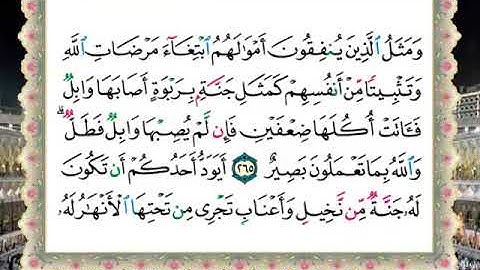 وَمَثَلُ ٱلَّذِينَ يُنفِقُونَ أَمْوَٰلَهُمُ ٱبْتِغَآءَ مَرْضَاتِ ٱللَّهِ
وَتَثْبِيتًا مِّنْ أَنفُسِهِمْ كَمَثَلِ جَنَّةٍۭ بِرَبْوَةٍ أَصَابَهَا وَابِلٌ
فَـَٔاتَتْ أُكُلَهَا ضِعْفَيْنِ فَإِن لَّمْ يُصِبْهَا وَابِلٌ فَطَلٌّ ۗ
وَٱللَّهُ بِمَا تَعْمَلُونَ بَصِيرٌ ٢٦٥ أَيَوَدُّ أَحَدُكُمْ أَن تَكُونَ
لَهُۥ جَنَّةٌ مِّن نَّخِيلٍ وَأَعْنَابٍ تَجْرِى مِن تَحْتِهَا ٱلْأَنْهَٰرُ لَهُۥ